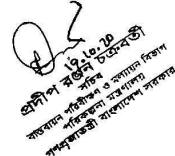 ১৭.১০.২০
প্রদীপ রঞ্জন চক্রবর্তী
সচিব
বাস্তবায়ন পরিবীক্ষণ ও মূল্যায়ন বিভাগ
পরিকল্পনা মন্ত্রণালয়
গণপ্রজাতন্ত্রী বাংলাদেশ সরকার